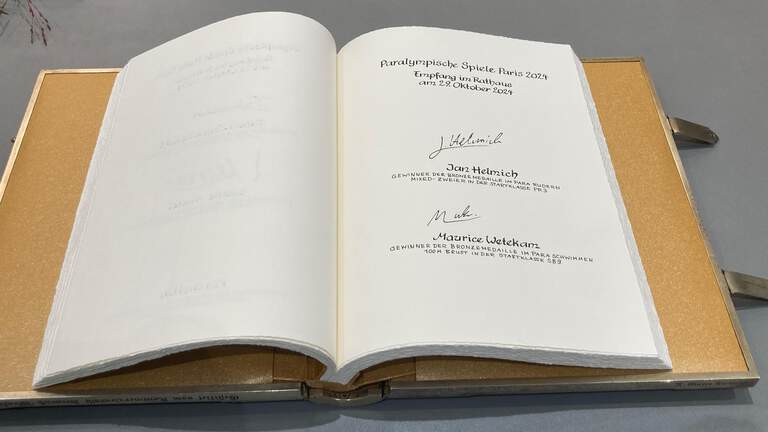 Paralympische Spiele Paris 2024
Empfang im Rathaus
am 29. Oktober 2024
J Helmich
Jan Helmich
GEWINNER DER BRONZEMEDAILLE IM PARA RUDERN
MIXED-ZWEIER IN DER STARTKLASSE PR3
Maurice Wetekam
GEWINNER DER BRONZEMEDAILLE IM PARA SCHWIMMEN
100M BRUST IN DER STARTKLASSE SB9